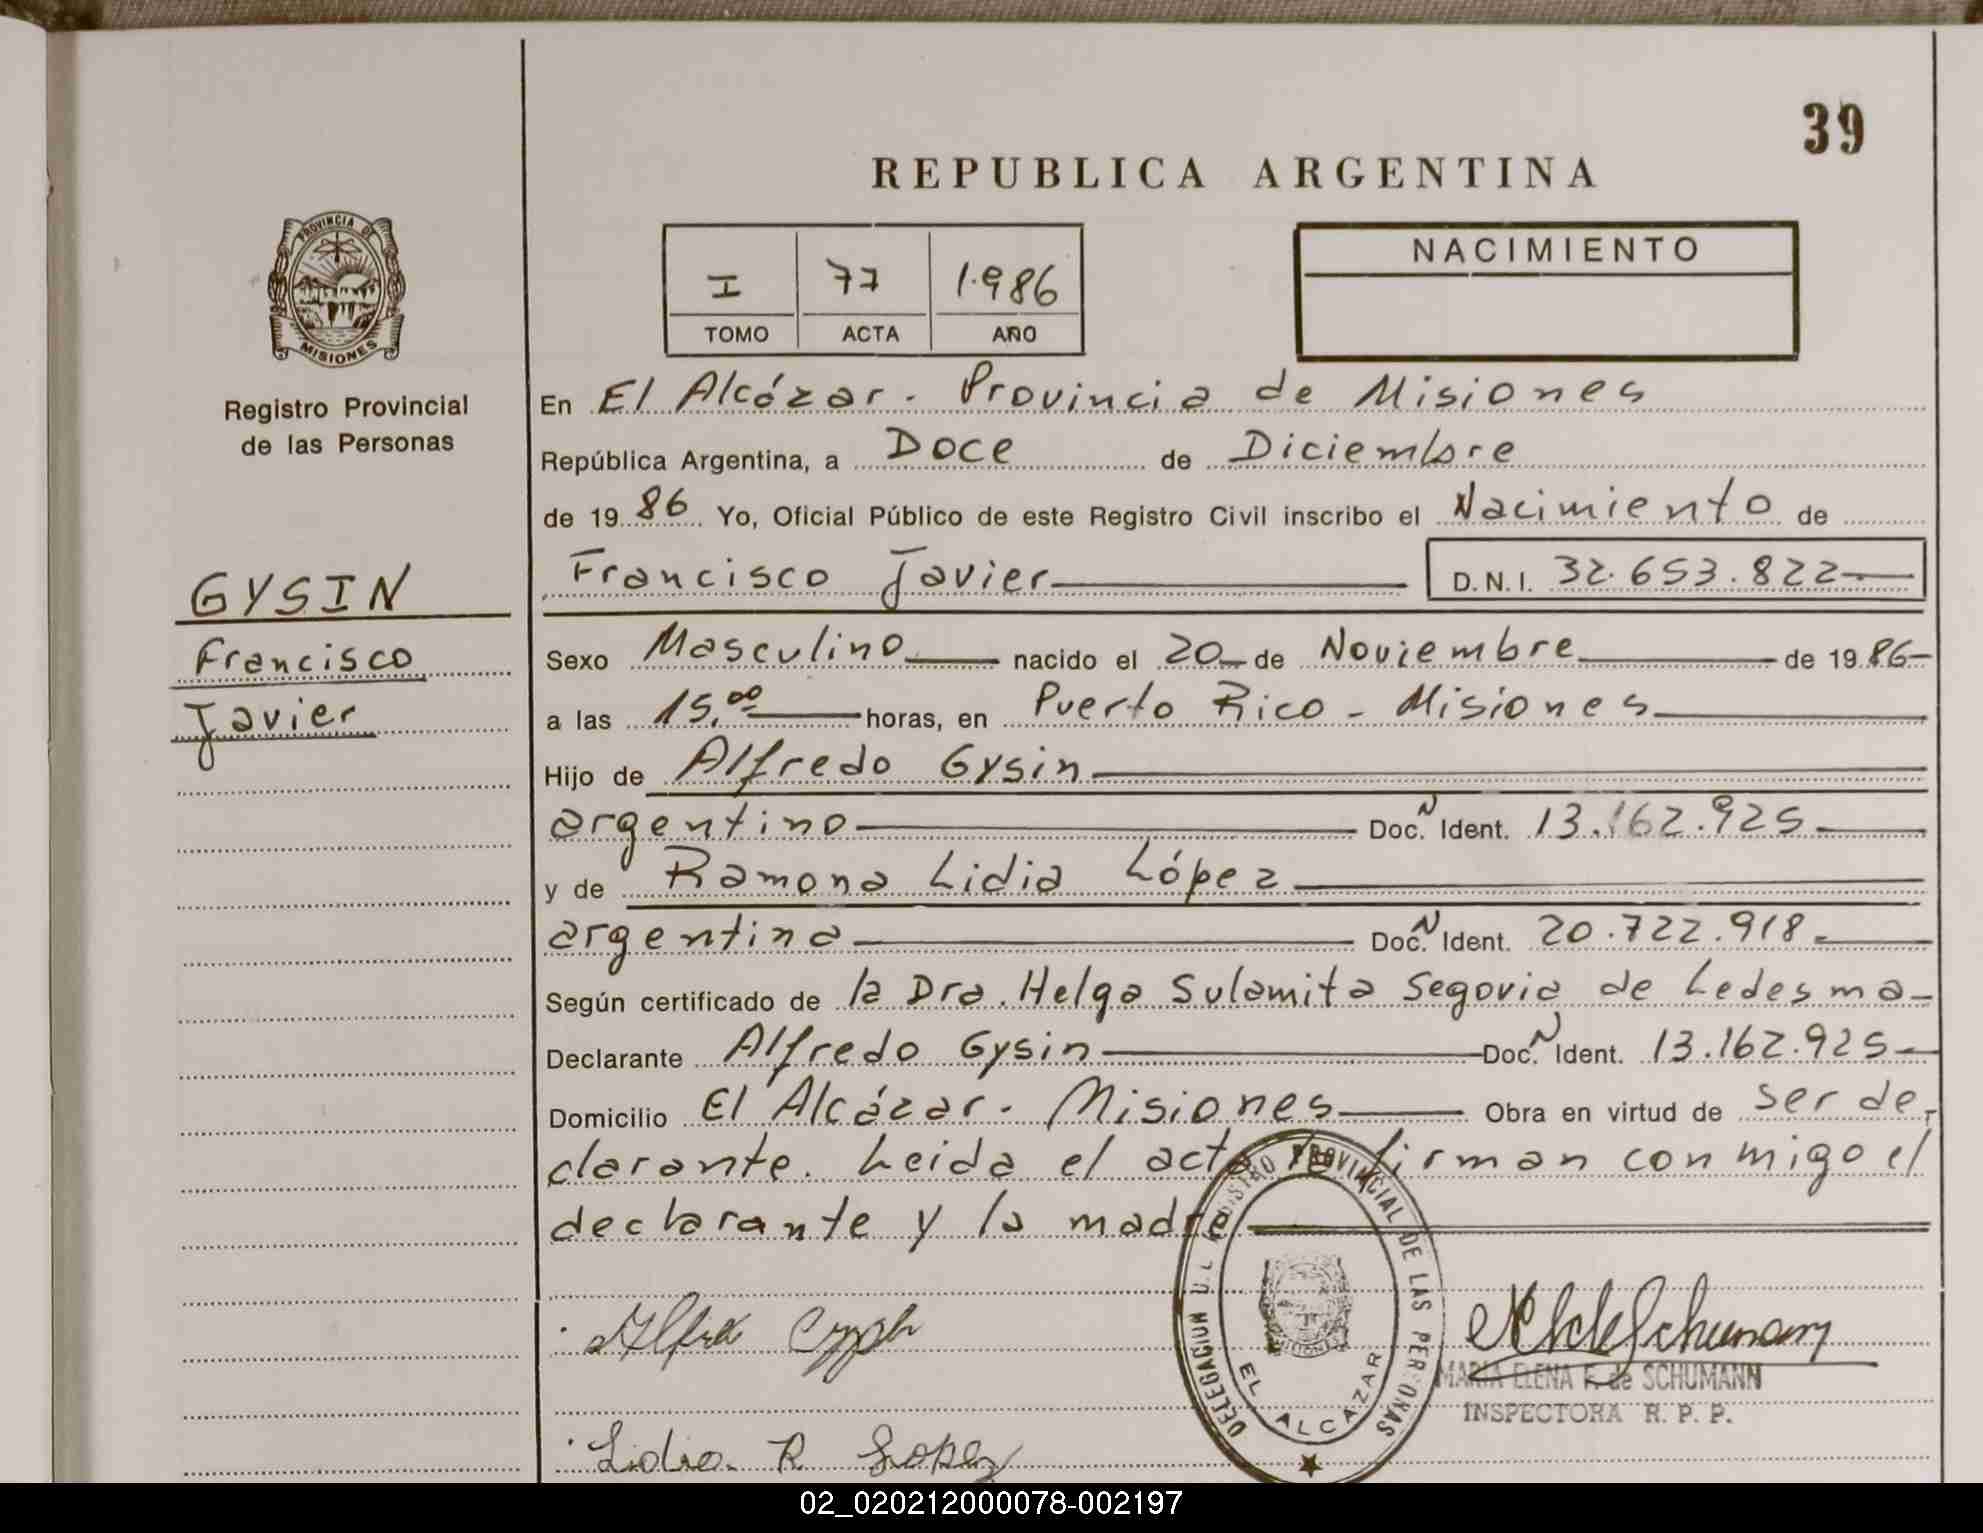 39
REPUBLICA ARGENTINA
PROVINCIA DE
MISIONES
Registro Provincial
de las Personas
I 77 1.986
TOMO ACTA AÑO
NACIMIENTO
En El Alcázar. Provincia de Misiones
República Argentina, a Doce de Diciembre
de 1986 Yo, Oficial Público de este Registro Civil inscribo el Nacimiento de
Francisco Javier D.N.I. 32.653.822
GYSIN
Francisco
Javier
Sexo Masculino nacido el 20 de Noviembre de 1986
a las 15.00 horas, en Puerto Rico - Misiones
Hijo de Alfredo Gysin
argentino Doc. N Ident. 13.162.925
y de Ramona Lidia López
argentina Doc. N Ident. 20.722.918
Según certificado de la Dra. Helga Sulamita Segovia de Ledesma
Declarante Alfredo Gysin Doc. N Ident. 13.162.925
Domicilio El Alcázar. Misiones Obra en virtud de ser de-
clarante. Leida el acta la firman conmigo el
declarante y la madre
DELEGACION DEL REGISTRO PROVINCIAL DE LAS PERSONAS
EL ALCAZAR
MARIA ELENA F. de SCHUMANN
INSPECTORA R. P. P.
Lidia R Lopez
02_020212000078-002197